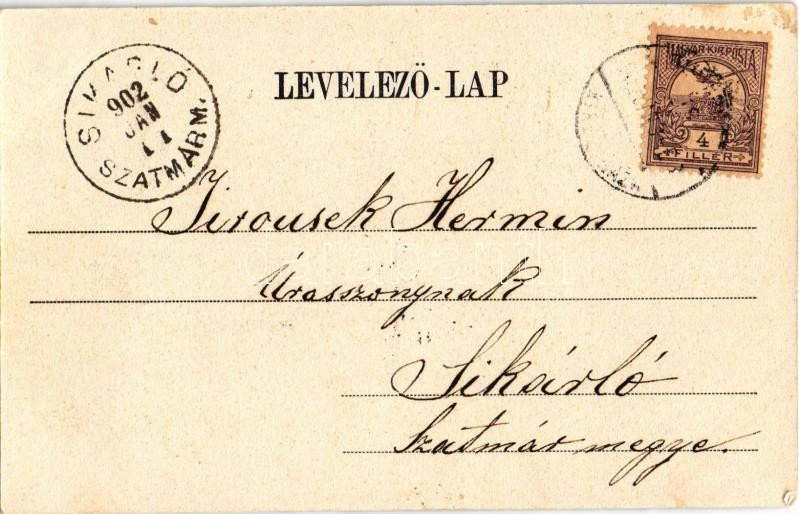 LEVELEZÖ-LAP
SIVARLÓ
902
JAN
11
SZATMÁRM.
MAGYAR KIR. POSTA
4
FILLÉR
Jirousek Hermin
Úrasszonynak
Sikárló
Szatmár megye.
darabanth